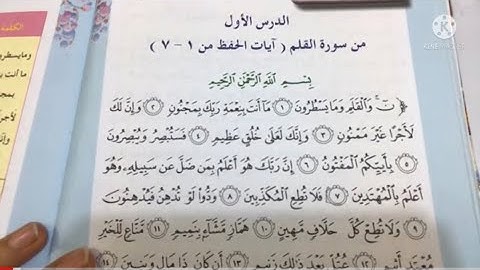 الدرس الأول
من سورة القلم ( آيات الحفظ من ١ - ٧ )
بِسْمِ اللَّهِ الرَّحْمَٰنِ الرَّحِيمِ
﴿ نٓ ۚ وَالْقَلَمِ وَمَا يَسْطُرُونَ ١ مَا أَنتَ بِنِعْمَةِ رَبِّكَ بِمَجْنُونٍ ٢ وَإِنَّ لَكَ
لَأَجْرًا غَيْرَ مَمْنُونٍ ٣ وَإِنَّكَ لَعَلَىٰ خُلُقٍ عَظِيمٍ ٤ فَسَتُبْصِرُ وَيُبْصِرُونَ
٥ بِأَييِّكُمُ الْمَفْتُونُ ٦ إِنَّ رَبَّكَ هُوَ أَعْلَمُ بِمَن ضَلَّ عَن سَبِيلِهِ وَهُوَ
أَعْلَمُ بِالْمُهْتَدِينَ ٧ فَلَا تُطِعِ الْمُكَذِّبِينَ ٨ وَدُّوا لَوْ تُدْهِنُ فَيُدْهِنُونَ
٩ وَلَا تُطِعْ كُلَّ حَلَّافٍ مَّهِينٍ ١٠ هَمَّازٍ مَّشَّاءٍ بِنَمِيمٍ ١١ مَّنَّاعٍ لِّلْخَيْرِ
مُعْتَدٍ أَثِيمٍ ١٢ عُتُلٍّ بَعْدَ ذَٰلِكَ زَنِيمٍ ١٣ أَن كَانَ ذَا مَالٍ وَبَنِينَ ١٤
الكلمة
وما يسطرون
ما أنت
KINEMASTER